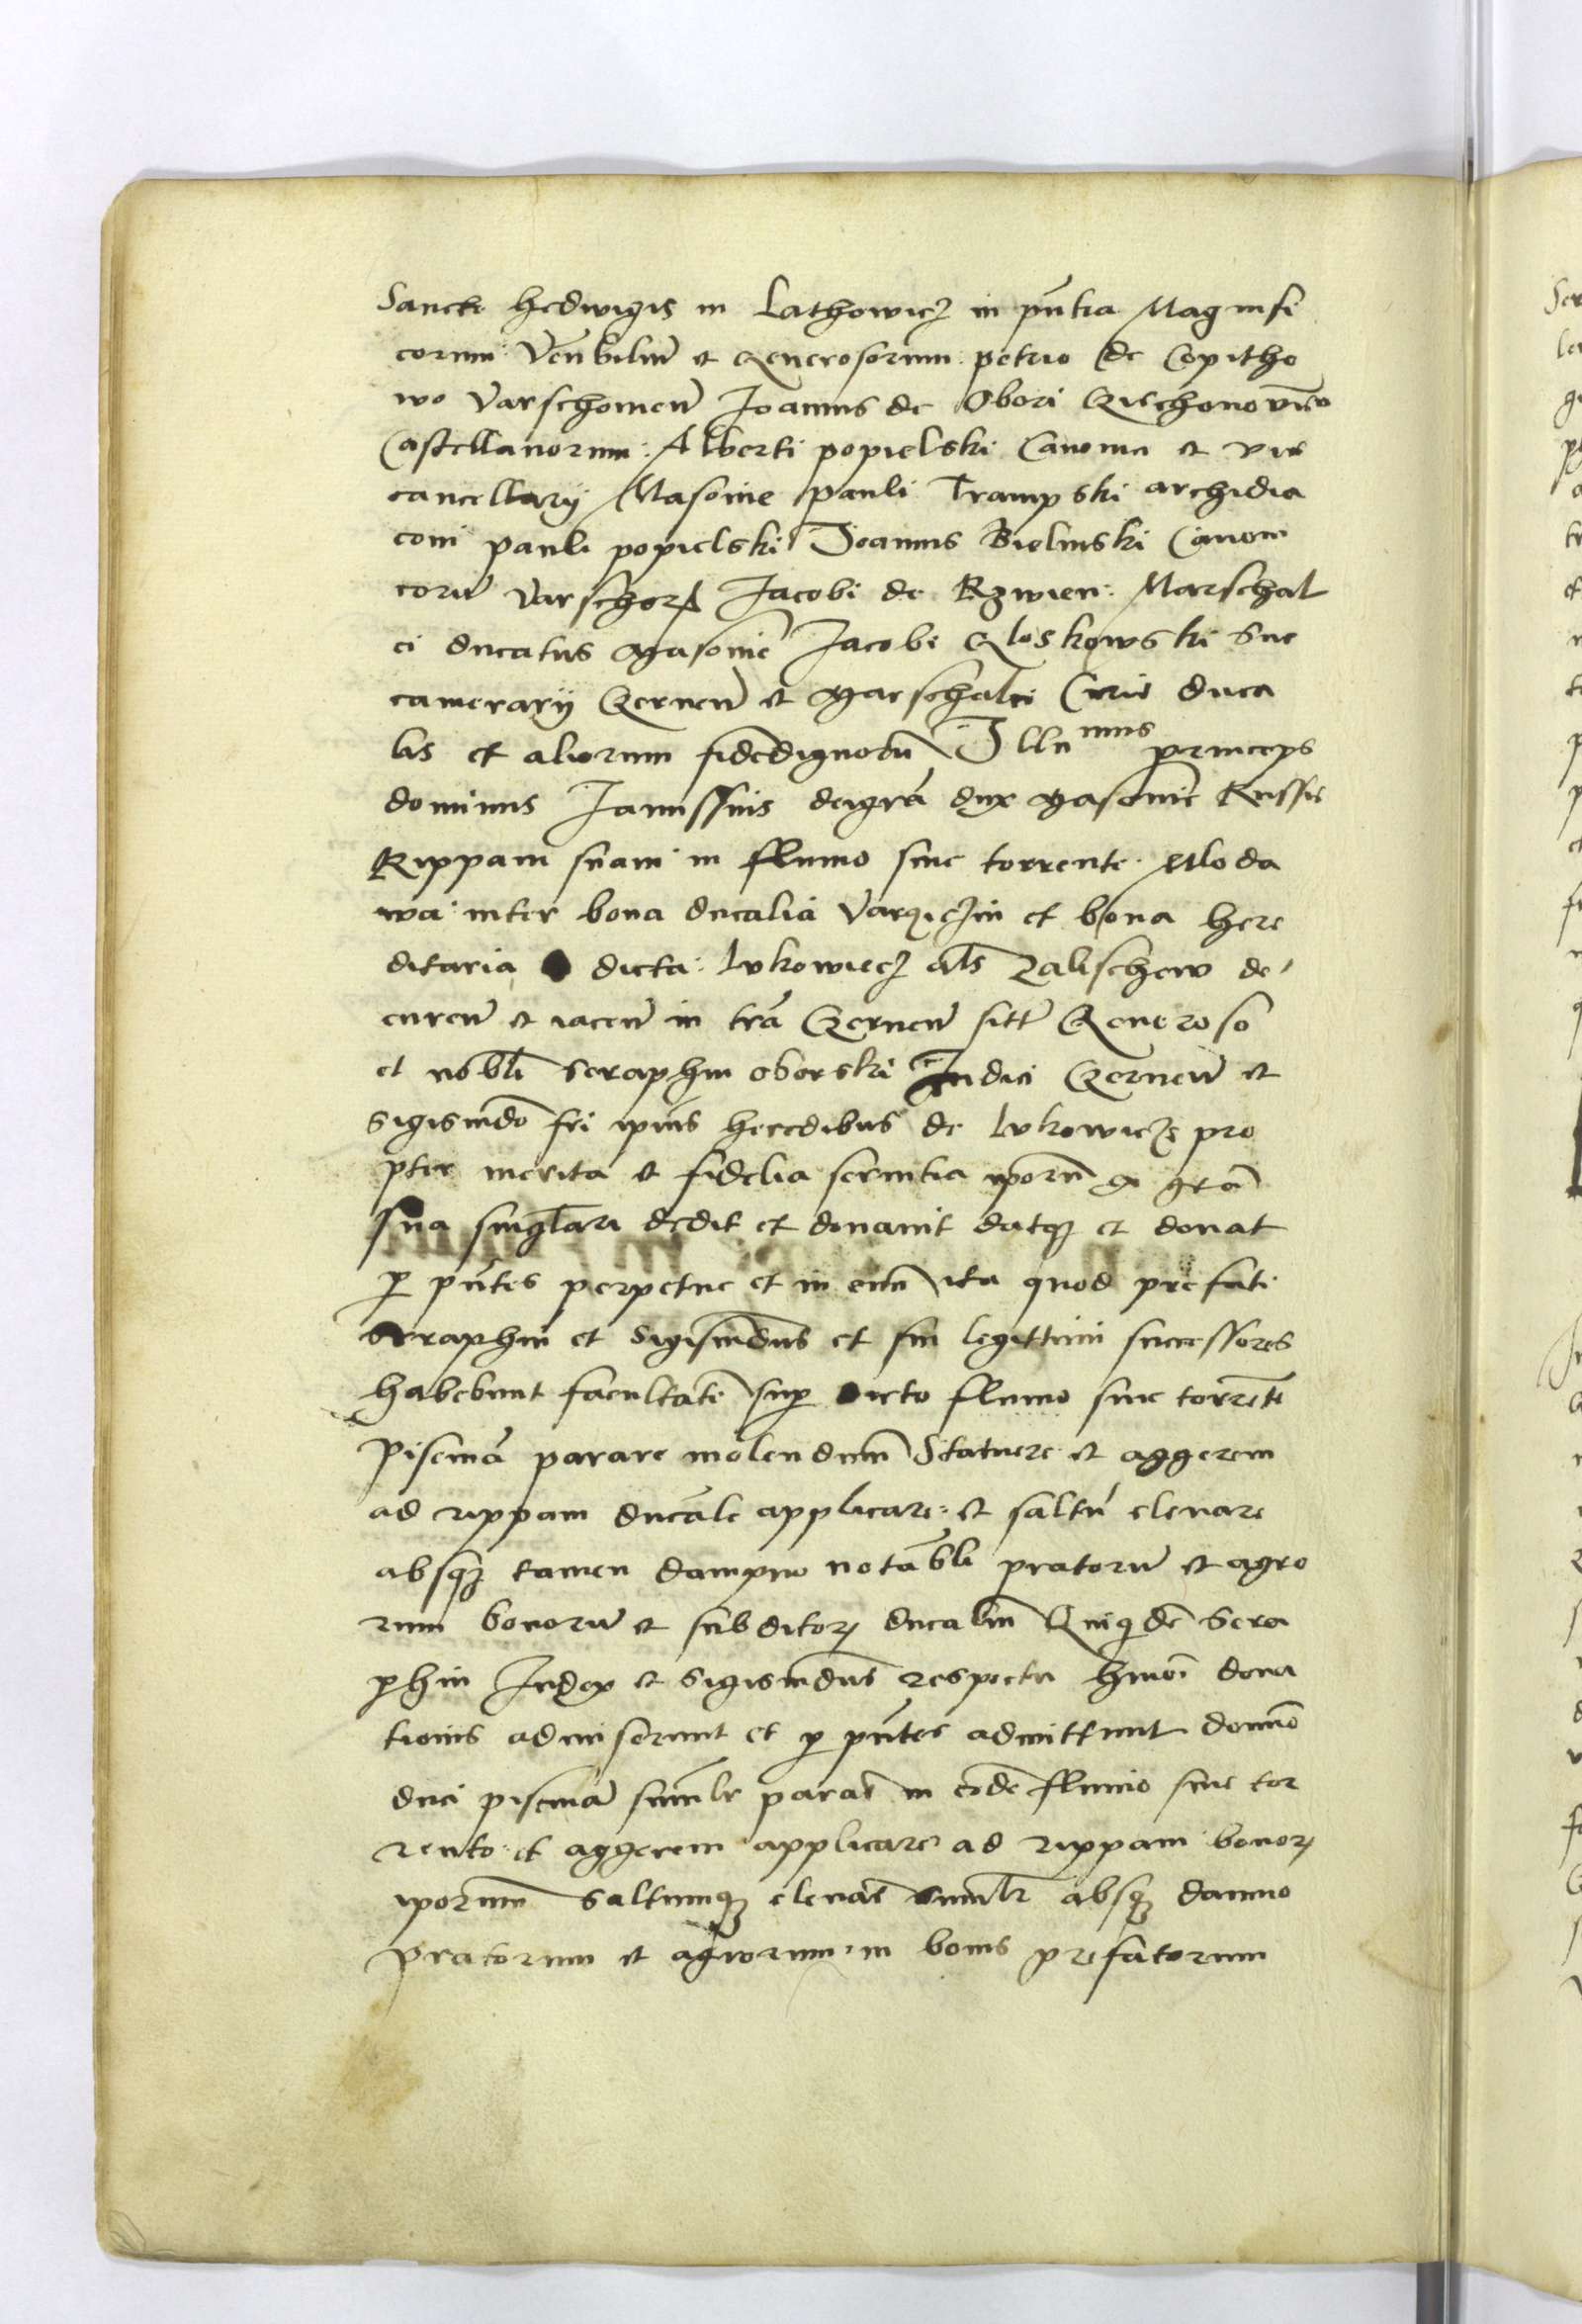 Sancte hedwigis in Lathowicz in pntia Magnifi
corum Venbiliu et Generosorum petri de Copitho
wo Varschovien Joannis de Obori Czechonovien
Castellanorum: Alberti popielski Canonici et vice
cancellarij Masovie pauli Trampski archidia
coni pauli popielski Joannis Bielinski Canoni
coru Varschov Jacobi de Rzwien: Marschal
ci ducatus Masovie Jacobi Gloskowski Suc
camerarij Czernen et Marschalci Curie duca
lis et aliorum fidedignoru Illumus princeps
dominus Janussius dei gra dux Masovie Russie
Rippam suam in fluvio sive torrente
inter bona ducalia et bona here
ditaria dicta: Lukowiecz als Zalischew de
curen et iacen in tra Czernen sitt Generoso
et nobli Seraphin oborski Judici Czernen et
Sigismdo fri ipius heredibus de Lukowiecz pro
pter merita et fidelia servitia iporu ex gra
sua singlari dedit et donavit datqz et donat
p pntes perpetue et in evu ita quod prefati
Seraphin et Sigismdus et sui legittimi successores
habebunt facultate sup dicto fluvio sive torrete
piscina parare molendinu Statuere et aggerem
ad rippam ducale applicare: et saltu elevare
absqz tamen dampno notabli pratoru et agro
rum bonoru et subditor ducaliu Quiqde Sera
phin Judex et Sigismdus respectu hmoi dona
tionis admiserunt et p pntes admittunt domno
duci piscina similr parare in eode fluvio sive tor
rente et aggerem applicare ad rippam bonor
iporum Saltumqz elevare similr absqz damno
pratorum et agrorum in bonis prefatorum